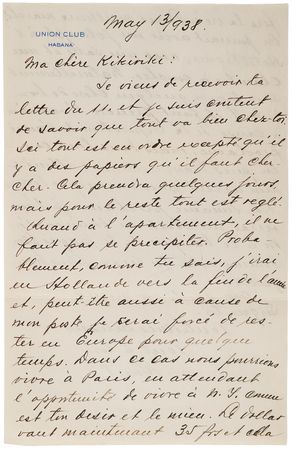 May 13/938.
UNION CLUB
HABANA
Ma chère Kikiriki:
Je viens de recevoir ta
lettre du 11. et je suis content
de savoir que tout va bien chez toi
Ici tout est en ordre excepté qu'il
y a des papiers qu'il faut cher-
cher. Cela prendra quelques jours,
mais pour le reste tout est réglé.
Quand à l'apartement, il ne
faut pas se precipiter. Proba-
blement, comme tu sais, j'irai
en Hollande vers la fin de l'année
et, peut être aussi à cause de
mon poste je serai forcé de res-
ter en Europe pour quelque
temps. Dans ce cas nous pourrions
vivre à Paris, en attendant
l'opportunité de vivre à N.Y. comme
est ton desir et le mien. Le dollar
vaut maintenant 35 frs et cela